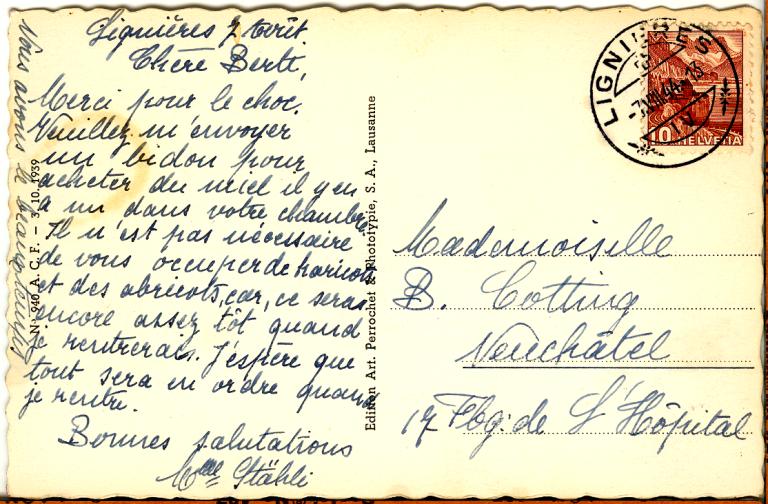 Lignières 7 août
Chère Berti,
Merci pour le choc.
Veuillez m'envoyer
un bidon pour
acheter du miel il y en
a un dans votre chambre
Il n'est pas nécessaire
de vous occuper de haricots
et des abricots, car, ce serai
encore assez tôt quand
je rentrerais. J'espère que
tout sera en ordre quand
je rentre.
Bonnes salutations
Mme Stähli
Vous avons le beau temps
N° 940 A. C. F. — 3. 10. 1939
Edition Art. Perrochet & Phototypie, S. A., Lausanne
LIGNIÈRES
-7.VIII.44-13
10 HELVETIA
Mademoiselle
B. Cotting
Neuchâtel
17 Fbg: de L'Hôpital